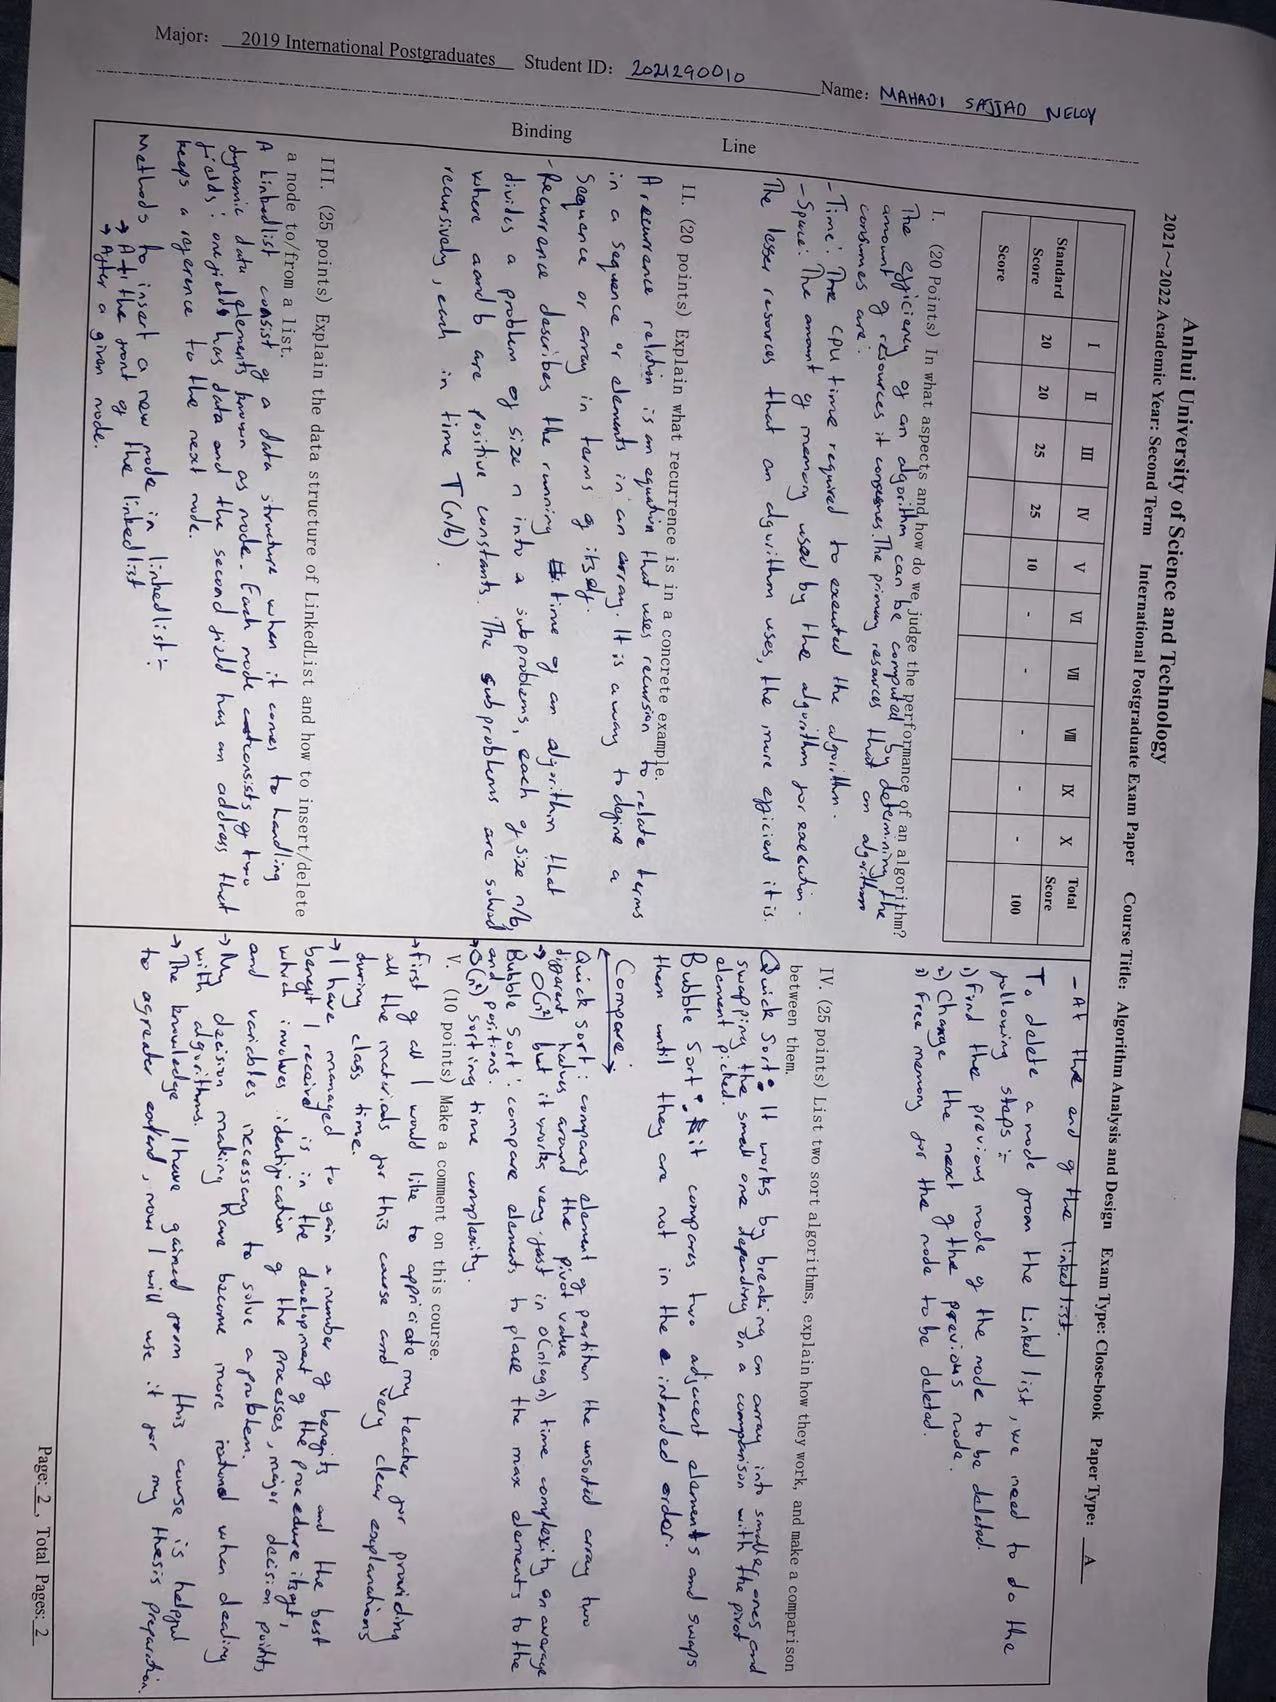 Major: 2019 International Postgraduates Student ID: 2021290010 Name: MAHADI SAJJAD NELOY
Binding Line
Anhui University of Science and Technology
2021~2022 Academic Year: Second Term International Postgraduate Exam Paper Course Title: Algorithm Analysis and Design Exam Type: Close-book Paper Type: A
I II III IV V VI VII VIII IX X Total Score
Standard Score 20 20 25 25 10 - - - - - 100
Score
I. (20 Points) In what aspects and how do we judge the performance of an algorithm?
The efficiency of an algorithm can be computed by determining the
amount of resources it consumes. The primary resources that an algorithm
consumes are:
- Time: The CPU time required to executed the algorithm.
- Space: The amount of memory used by the algorithm for execution.
The lesser resources that an algorithm uses, the more efficient it is.
II. (20 points) Explain what recurrence is in a concrete example.
A recurrence relation is an equation that uses recursion to relate terms
in a sequence or elements in an array. It is a way to define a
sequence or array in terms of itself.
- Recurrence describes the running time of an algorithm that
divides a problem of size n into a subproblems, each of size n/b,
where a and b are positive constants. The subproblems are solved
recursively, each in time T(n/b).
III. (25 points) Explain the data structure of LinkedList and how to insert/delete
a node to/from a list.
A linkedlist consist of a data structure when it comes to handling
dynamic data elements known as node. Each node consists of two
fields: one field has data and the second field has an address that
keeps a reference to the next node.
Methods to insert a new node in linkedlist:-
→ At the front of the linkedlist
→ After a given node.
- At the end of the linked list.
To delete a node from the Linked list, we need to do the
following steps:-
1) Find the previous node of the node to be deleted.
2) Change the next of the previous node.
3) Free memory for the node to be deleted.
IV. (25 points) List two sort algorithms, explain how they work, and make a comparison
between them.
Quick Sort: It works by breaking an array into smaller ones and
swapping the small one depending on a comparison with the pivot
element picked.
Bubble Sort: it compares two adjacent elements and swaps
them until they are not in the intended order.
Compare:
Quick sort: compares element of partition the unsorted array two
different halves around the pivot value
→ O(n²) but it works very fast in O(nlogn) time complexity on average
Bubble Sort: compare elements to place the max elements to the
end positions.
→ O(n²) sorting time complexity.
V. (10 points) Make a comment on this course.
→ First of all I would like to appriciate my teacher for providing
all the materials for this course and very clear explanations
during class time.
→ I have managed to gain a number of benefits and the best
benefit I received is in the development of the procedure itself,
which involves identification of the processes, major decision points,
and variables necessary to solve a problem.
→ My decision making have become more rational when dealing
with algorithms.
→ The knowledge I have gained form this course is helpful
to agreater extend, now I will use it for my thesis preparation.
Page: 2, Total Pages: 2